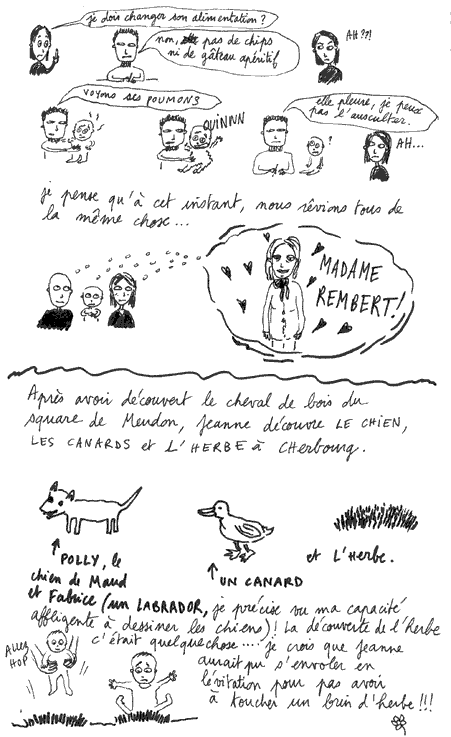 je dois changer son alimentation ?
non, pas de chips
ni de gâteau apéritif !
AH ??!
VOYONS SES POUMONS
OUINNNN
elle pleure, je peux
pas l'ausculter.
AH...
je pense qu'à cet instant, nous rêvions tous de
la même chose...
MADAME
REMBERT!
Après avoir découvert le cheval de bois du
square de Meudon, Jeanne découvre LE CHIEN,
LES CANARDS et L'HERBE à CHerbourg.
POLLY, le
chien de Maud
et Fabrice (un LABRADOR, je précise vu ma capacité
affligente à dessiner les chiens)! La découverte de l'herbe
c'était quelquechose.... je crois que Jeanne
aurait pu s'envoler en
lévitation pour pas avoir
à toucher un brin d'herbe !!!
UN CANARD
et L'Herbe.
ALLEZ
HOP